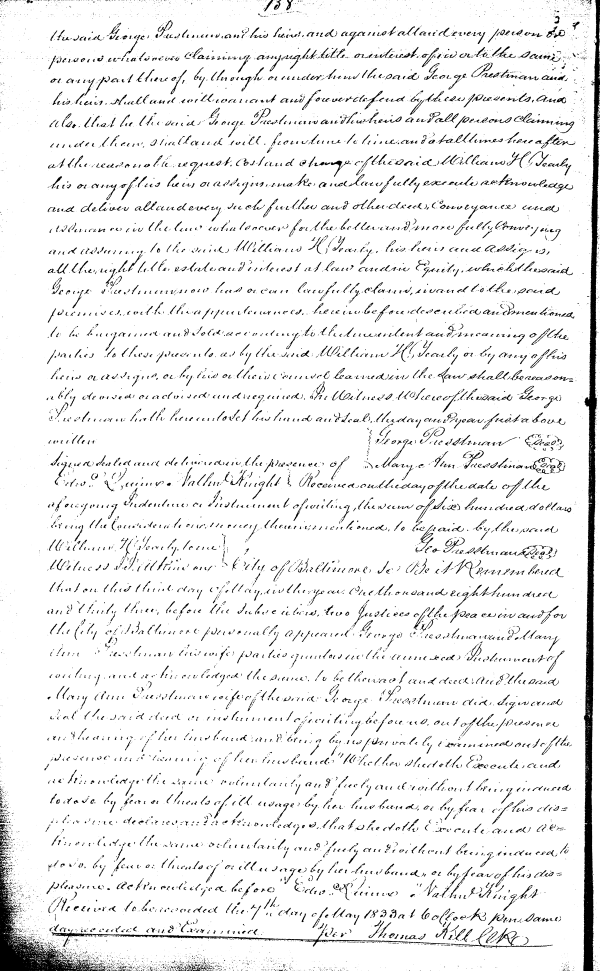 158
the said George Presstman and his heirs, and against all and every person or
persons whatsoever claiming any right title or interest of in or to the same
or any part thereof, by, through or under him the said George Presstman and
his heirs, shall and will warrant and forever defend by these presents, and
also that he the said George Presstman and his heirs and all persons claiming
under them, shall and will from time to time, and at all times hereafter
at the reasonable request, Cost and charge of the said William H. Yearly
his or any of his heirs or assigns, make, and lawfully execute acknowledge
and deliver all and every such further and other deed, Conveyance and
assurance in the law whatsoever for the better and more fully Conveying
and assuring to the said William H. Yearly, his heirs and assigns,
all the right title estate and interest at law and in Equity, which the said
George Presstman now has or can lawfully claim, in and to the said
premises, with the appurtenances, herein before described and mentioned
to be bargained and sold according to the true intent and meaning of the
parties to these presents, as by the said William H. Yearly or by any of his
heirs or assigns, or by his or their counsel learned in the Law shall be reason=
ably devised or advised and required. In Witness Whereof the said George
Presstman hath hereunto set his hand and seal, the day and year first above
written
George Presstman Seal
Signed Sealed and delivered in the presence of
Mary Ann Presstman Seal
Edwd. Nathl. Knight Received on the day of the date of the
aforegoing Indenture or Instrument of writing, the sum of Six hundred dollars
being the Consideration money therein mentioned, to be paid by the said
William H. Yearly to me
Geo Presstman Seal
Witness City of Baltimore Sc Be it Remembered
that on this third day of May, in the year One thousand eight hundred
and thirty three, before the subscribers, two Justices of the peace in and for
the City of Baltimore personally appeared George Presstman and Mary
Ann Presstman his wife parties grantors in the annexed Instrument of
writing, and acknowledged the same, to be their act and deed. And the said
Mary Ann Presstman wife of the said George Presstman did Sign and
Seal the said deed or instrument of writing before us, out of the presence
and hearing of her husband, and being by us privately examined out of the
presence and hearing of her husband "Whether she doth Execute and
acknowledge the same voluntarily and freely and without being induced
to do so by fear or threats of ill usage by her husband, or by fear of his dis=
pleasure declares and acknowledges, that she doth Execute and Ac=
knowledge the same voluntarily and freely and without being induced to
so by fear or threats of or ill usage by her husband, or by fear of his dis=
pleasure. Acknowledged before Edwd. Nathl. Knight
Received to be recorded the 7th day of May 1833 at 6 oClock pm, same
day recorded and Examined per Thomas Kell Clke